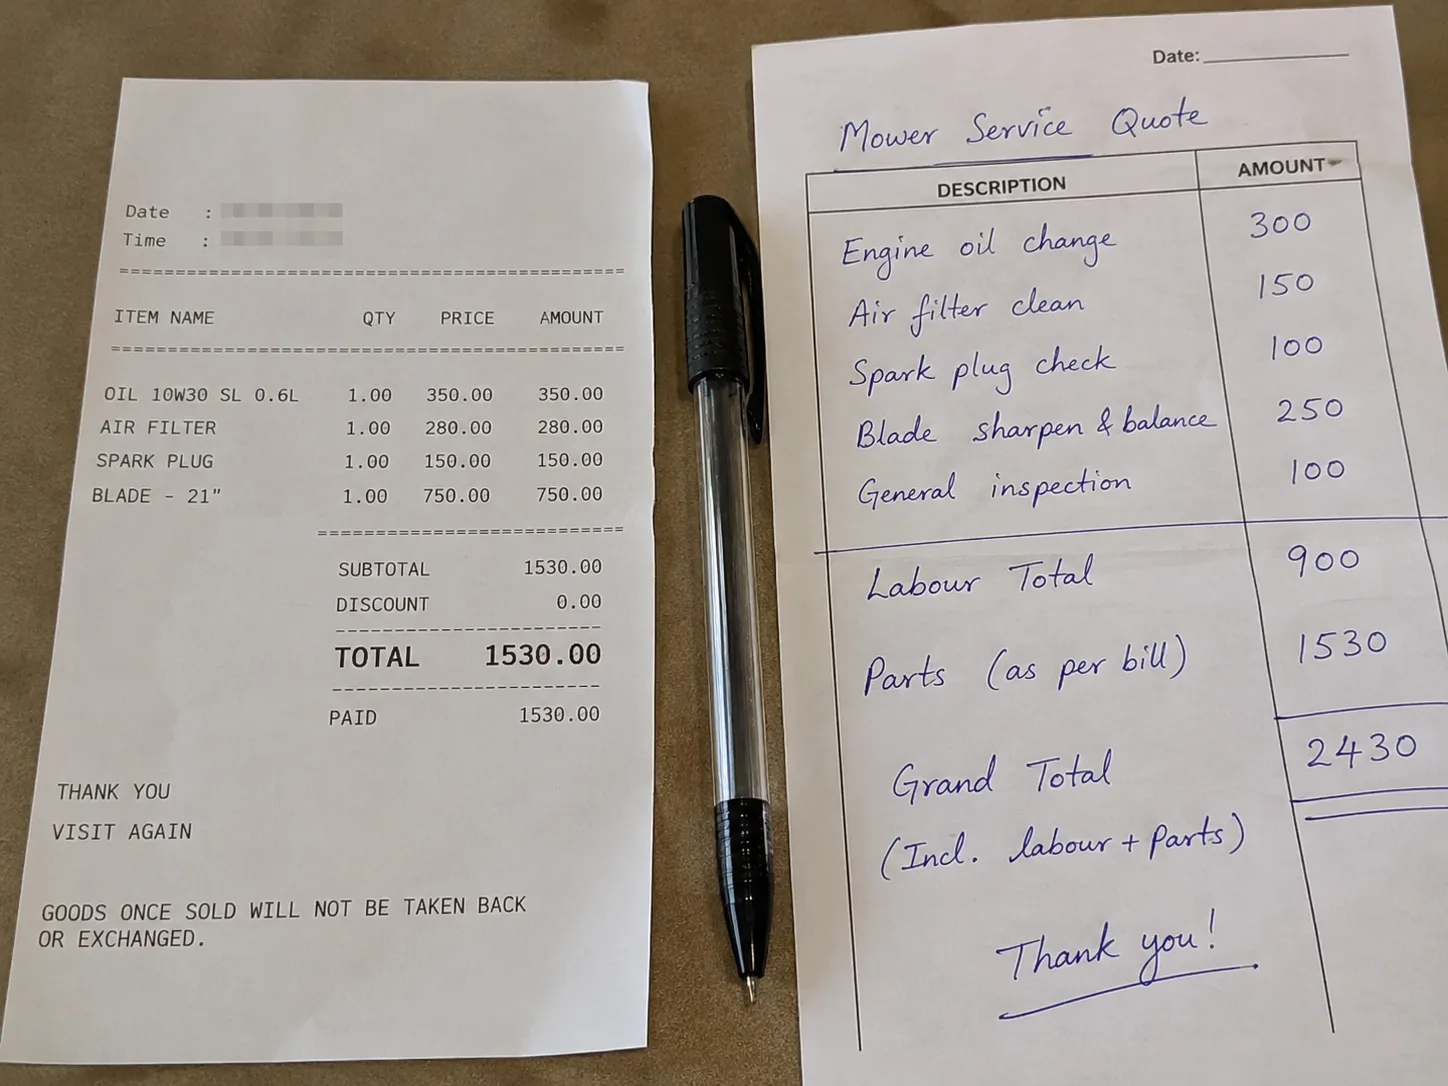 Date :
Time :
==========================================
ITEM NAME QTY PRICE AMOUNT
==========================================
OIL 10W30 SL 0.6L 1.00 350.00 350.00
AIR FILTER 1.00 280.00 280.00
SPARK PLUG 1.00 150.00 150.00
BLADE - 21" 1.00 750.00 750.00
==========================
SUBTOTAL 1530.00
DISCOUNT 0.00
----------------------
TOTAL 1530.00
----------------------
PAID 1530.00
THANK YOU
VISIT AGAIN
GOODS ONCE SOLD WILL NOT BE TAKEN BACK
OR EXCHANGED.
Date:
Mower Service Quote
DESCRIPTION AMOUNT
Engine oil change 300
Air filter clean 150
Spark plug check 100
Blade sharpen & balance 250
General inspection 100
Labour Total 900
Parts (as per bill) 1530
Grand Total 2430
(Incl. labour + Parts)
Thank you!